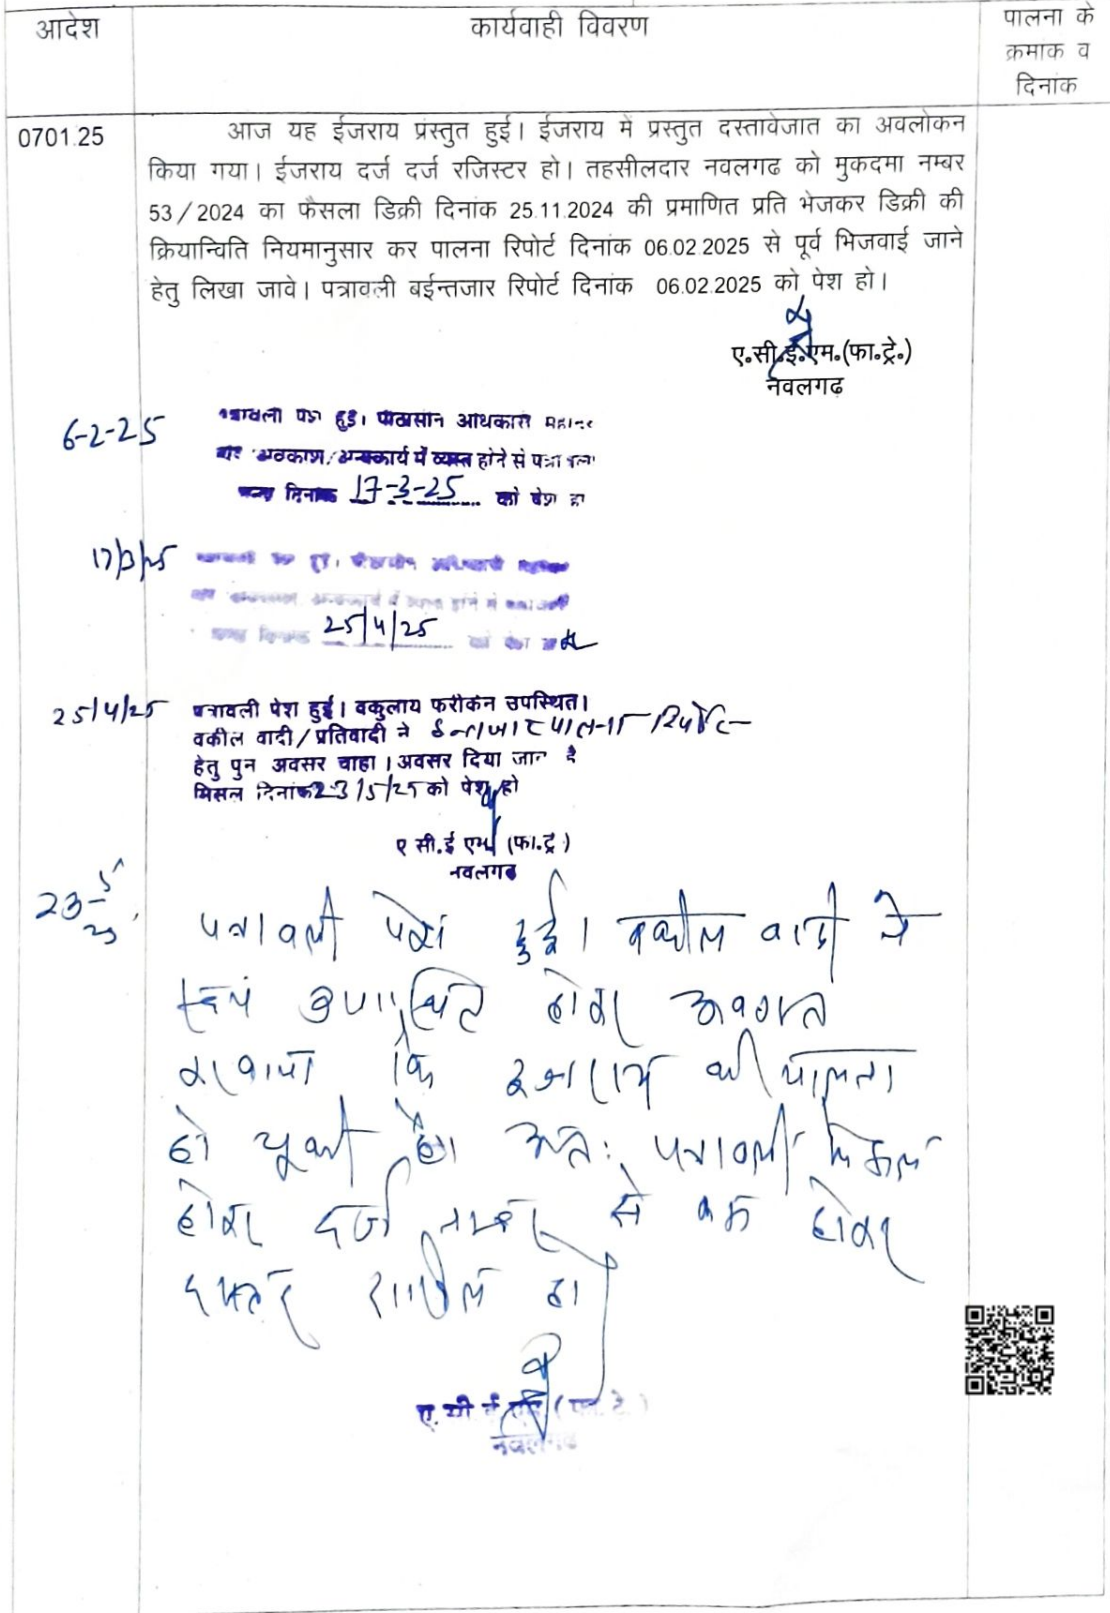 आदेश
कार्यवाही विवरण
पालना के
क्रमांक व
दिनांक
0701.25
आज यह ईजराय प्रस्तुत हुई। ईजराय में प्रस्तुत दस्तावेजात का अवलोकन
किया गया। ईजराय दर्ज दर्ज रजिस्टर हो। तहसीलदार नवलगढ को मुकदमा नम्बर
53/2024 का फैसला डिक्री दिनांक 25.11.2024 की प्रमाणित प्रति भेजकर डिक्री की
क्रियान्विति नियमानुसार कर पालना रिपोर्ट दिनांक 06.02.2025 से पूर्व भिजवाई जाने
हेतु लिखा जावे। पत्रावली बईन्तजार रिपोर्ट दिनांक 06.02.2025 को पेश हो।
ए.सी.ई.एम.(फा.ट्रे.)
नवलगढ़
6-2-25
पत्रावली पेश हुई। पीठासीन अधिकारी
अवकाश/अन्यकार्य में व्यस्त होने से
दिनांक 17-3-25 को पेश हो
17/3/25
25/4/25
25/4/25
पत्रावली पेश हुई। वकुलाय फरीकेन उपस्थित।
वकील वादी/प्रतिवादी ने इन्तजार पालना रिपोर्ट
हेतु पुन अवसर चाहा। अवसर दिया जाता है
मिसल दिनांक 23/5/25 को पेश हो
ए सी.ई एम (फा.ट्रे)
नवलगढ
23-5/25
पत्रावली पेश हुई। वकील वादी ने
स्वयं उपस्थित होकर अवगत
करवाया कि इजराय की पालना
हो चूकी है। अतः पत्रावली फैसल
होकर दर्ज नम्बर से कम होकर
दफ्तर दाखिल हो
ए.सी.ई.एम (फा.ट्रे.)
नवलगढ